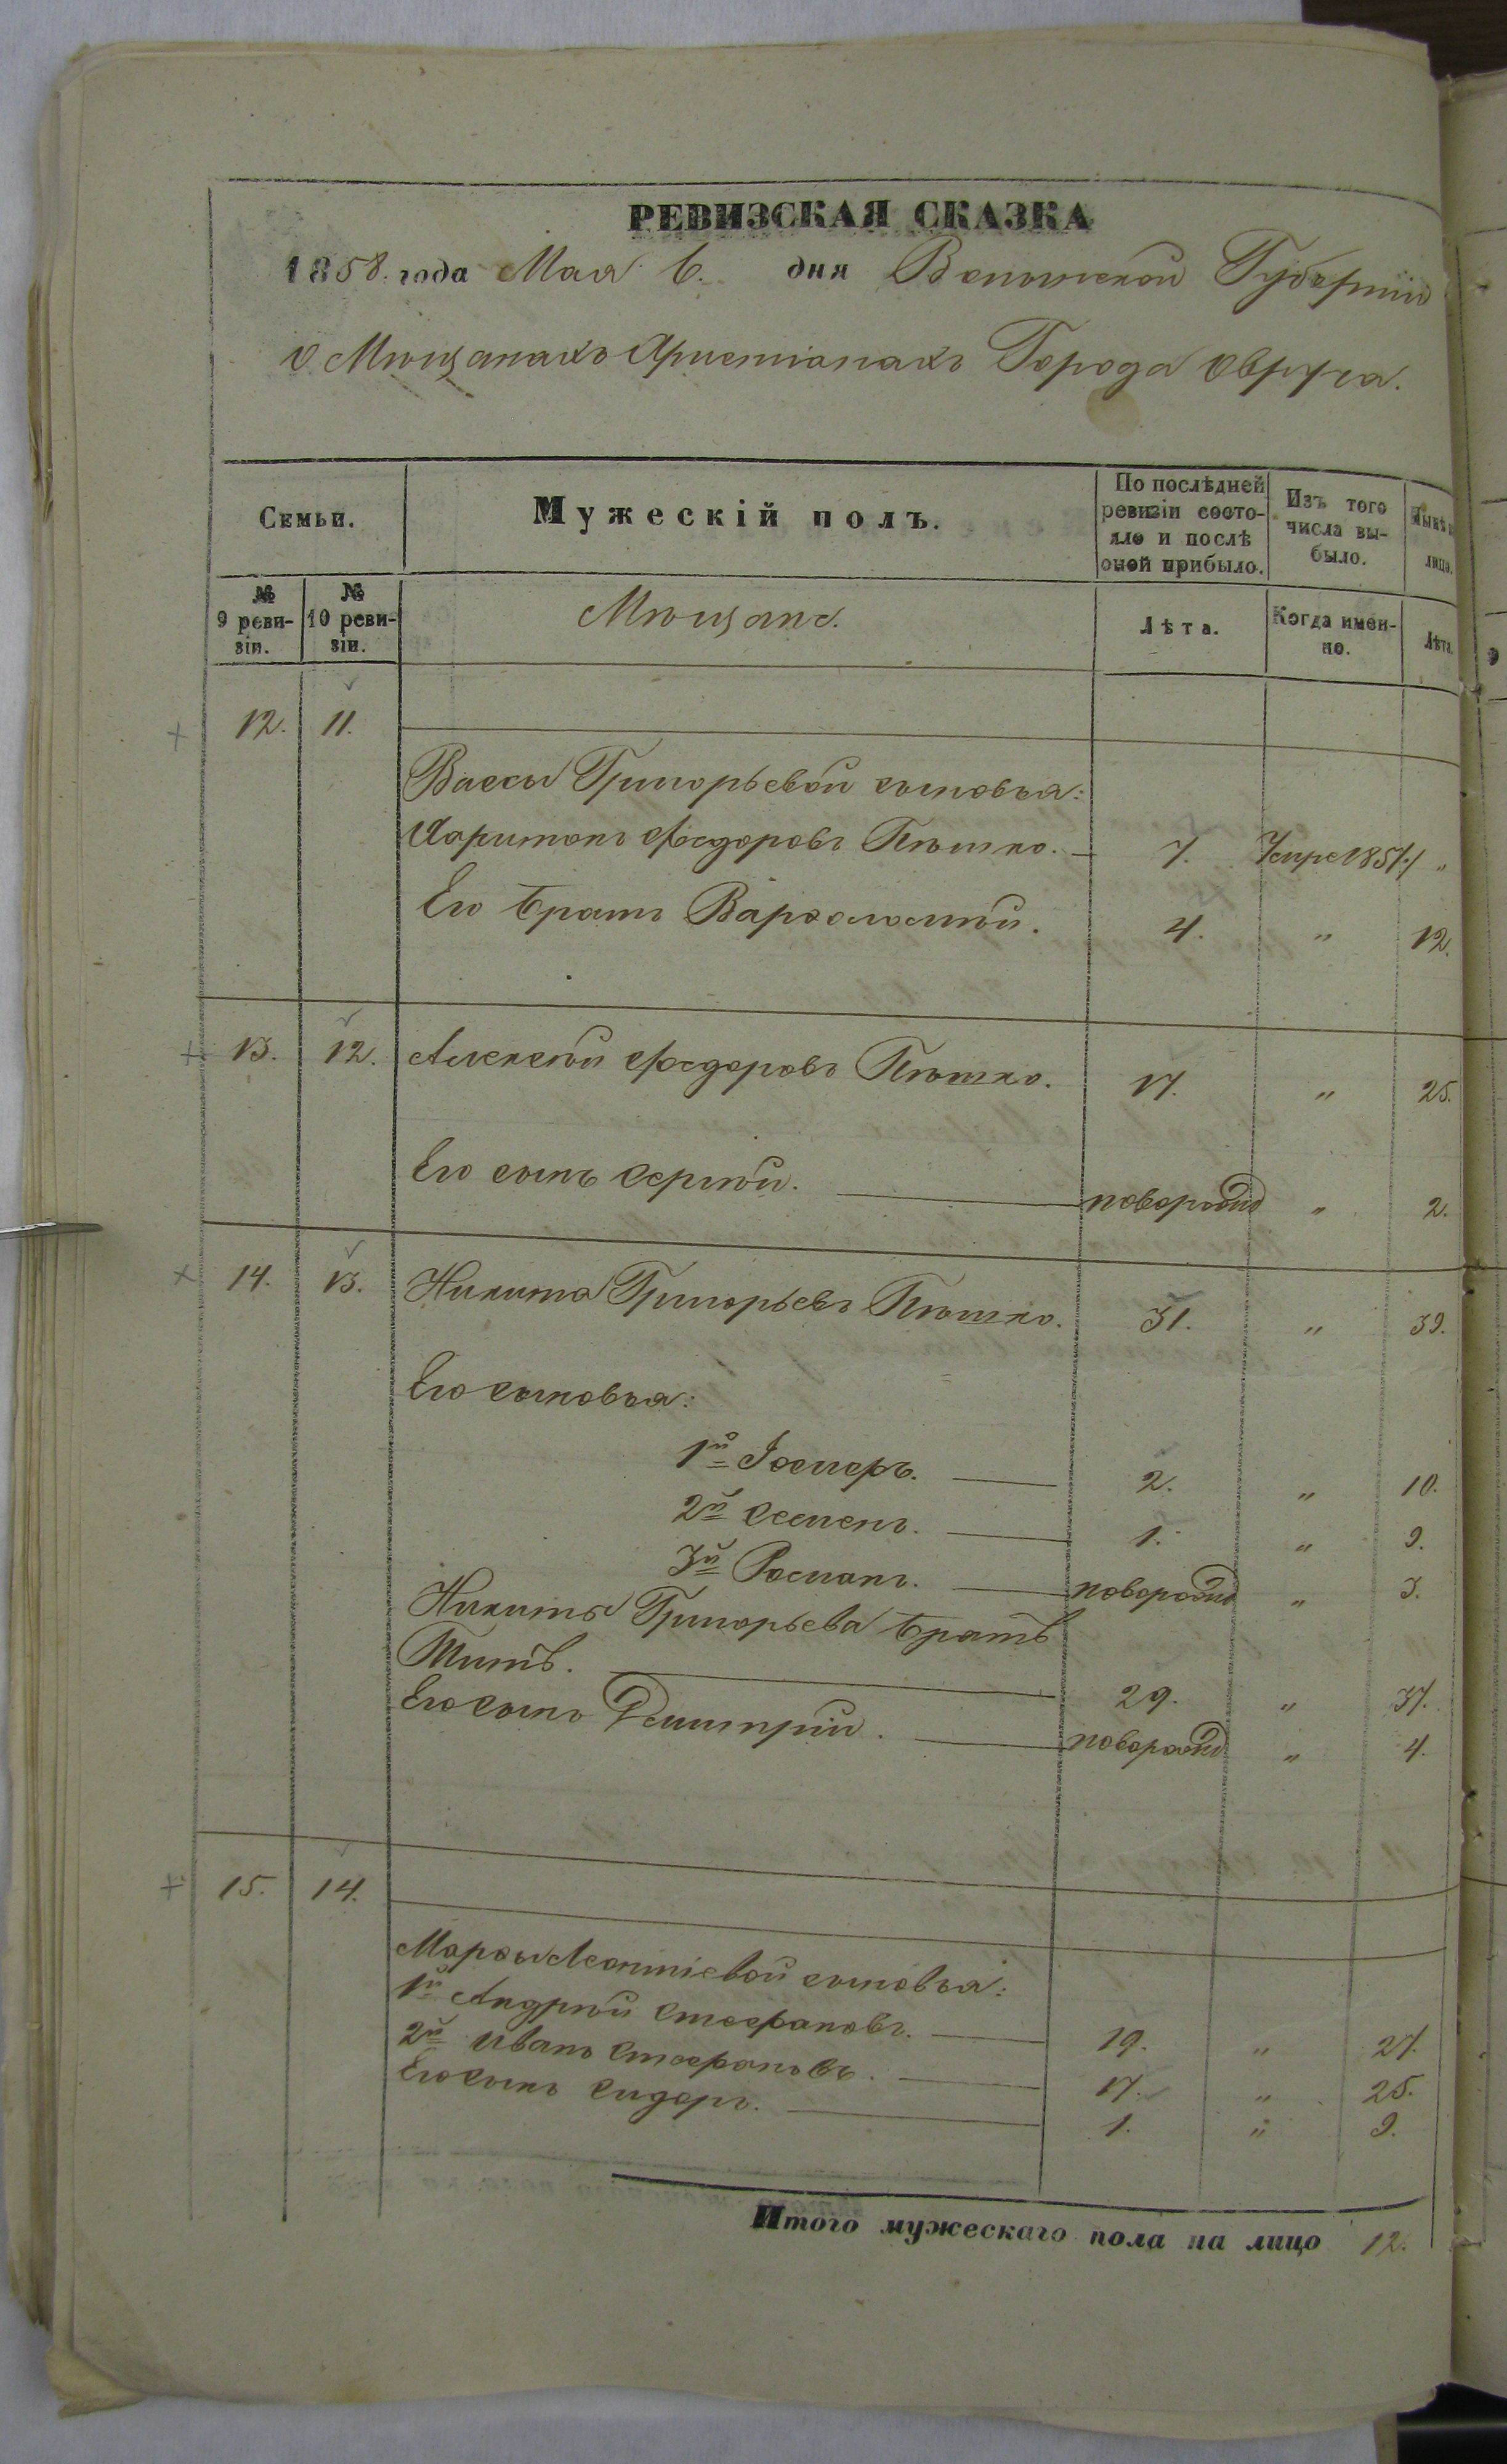 РЕВИЗСКАЯ СКАЗКА
1858. года Мая 6. дня Волынской Губерніи
о Мѣщанахъ Христіанахъ Города Овруча.
Семьи.
Мужескій полъ.
По послѣдней ревизіи состояло и послѣ оной прибыло.
Изъ того числа выбыло.
Нынѣ
лицо.
№ 9 ревизіи.
№ 10 ревизіи.
Мѣщане.
Лѣта.
Когда именно.
Лѣта.
12. 11.
Вассы Григорьевой сыновья:
Харитонъ Федоровъ Пѣшко. 7. Умре 1857. "
Его братъ Варфоломѣй. 4. " 12.
13. 12. Алексѣй Федоровъ Пѣшко. 17. " 25.
Его сынъ Сергѣй. новорожд " 2.
14. 13. Никита Григорьевъ Пѣшко. 31. " 39.
Его сыновья:
1й Госиеръ. 2. " 10.
2й Семенъ. 1. " 9.
3й Романъ. новорожд " 3.
Никиты Григорьева братъ
Титъ. 29. " 37.
Его сынъ Дмитрій. новорожд " 4.
15. 14.
Марфы Леонтіевой сыновья:
1й Андрѣй Стефановъ. 19. " 27.
2й Иванъ Стефановъ. 17. " 25.
Его сынъ Сидоръ. 1. " 9.
Итого мужескаго пола на лицо 12.